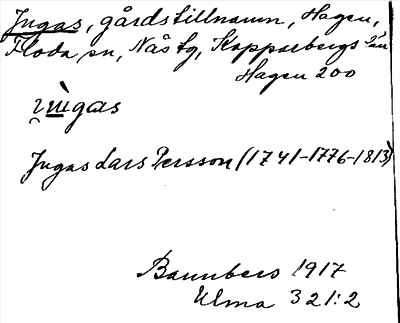 Jugas, gårdstillnamn, Hagen,
Floda sn, Nås tg, Kopparbergs län
Hagen 200
Jugas Lars Persson (1741-1776-1813)
Bannbers 1917
Ulma 321:2